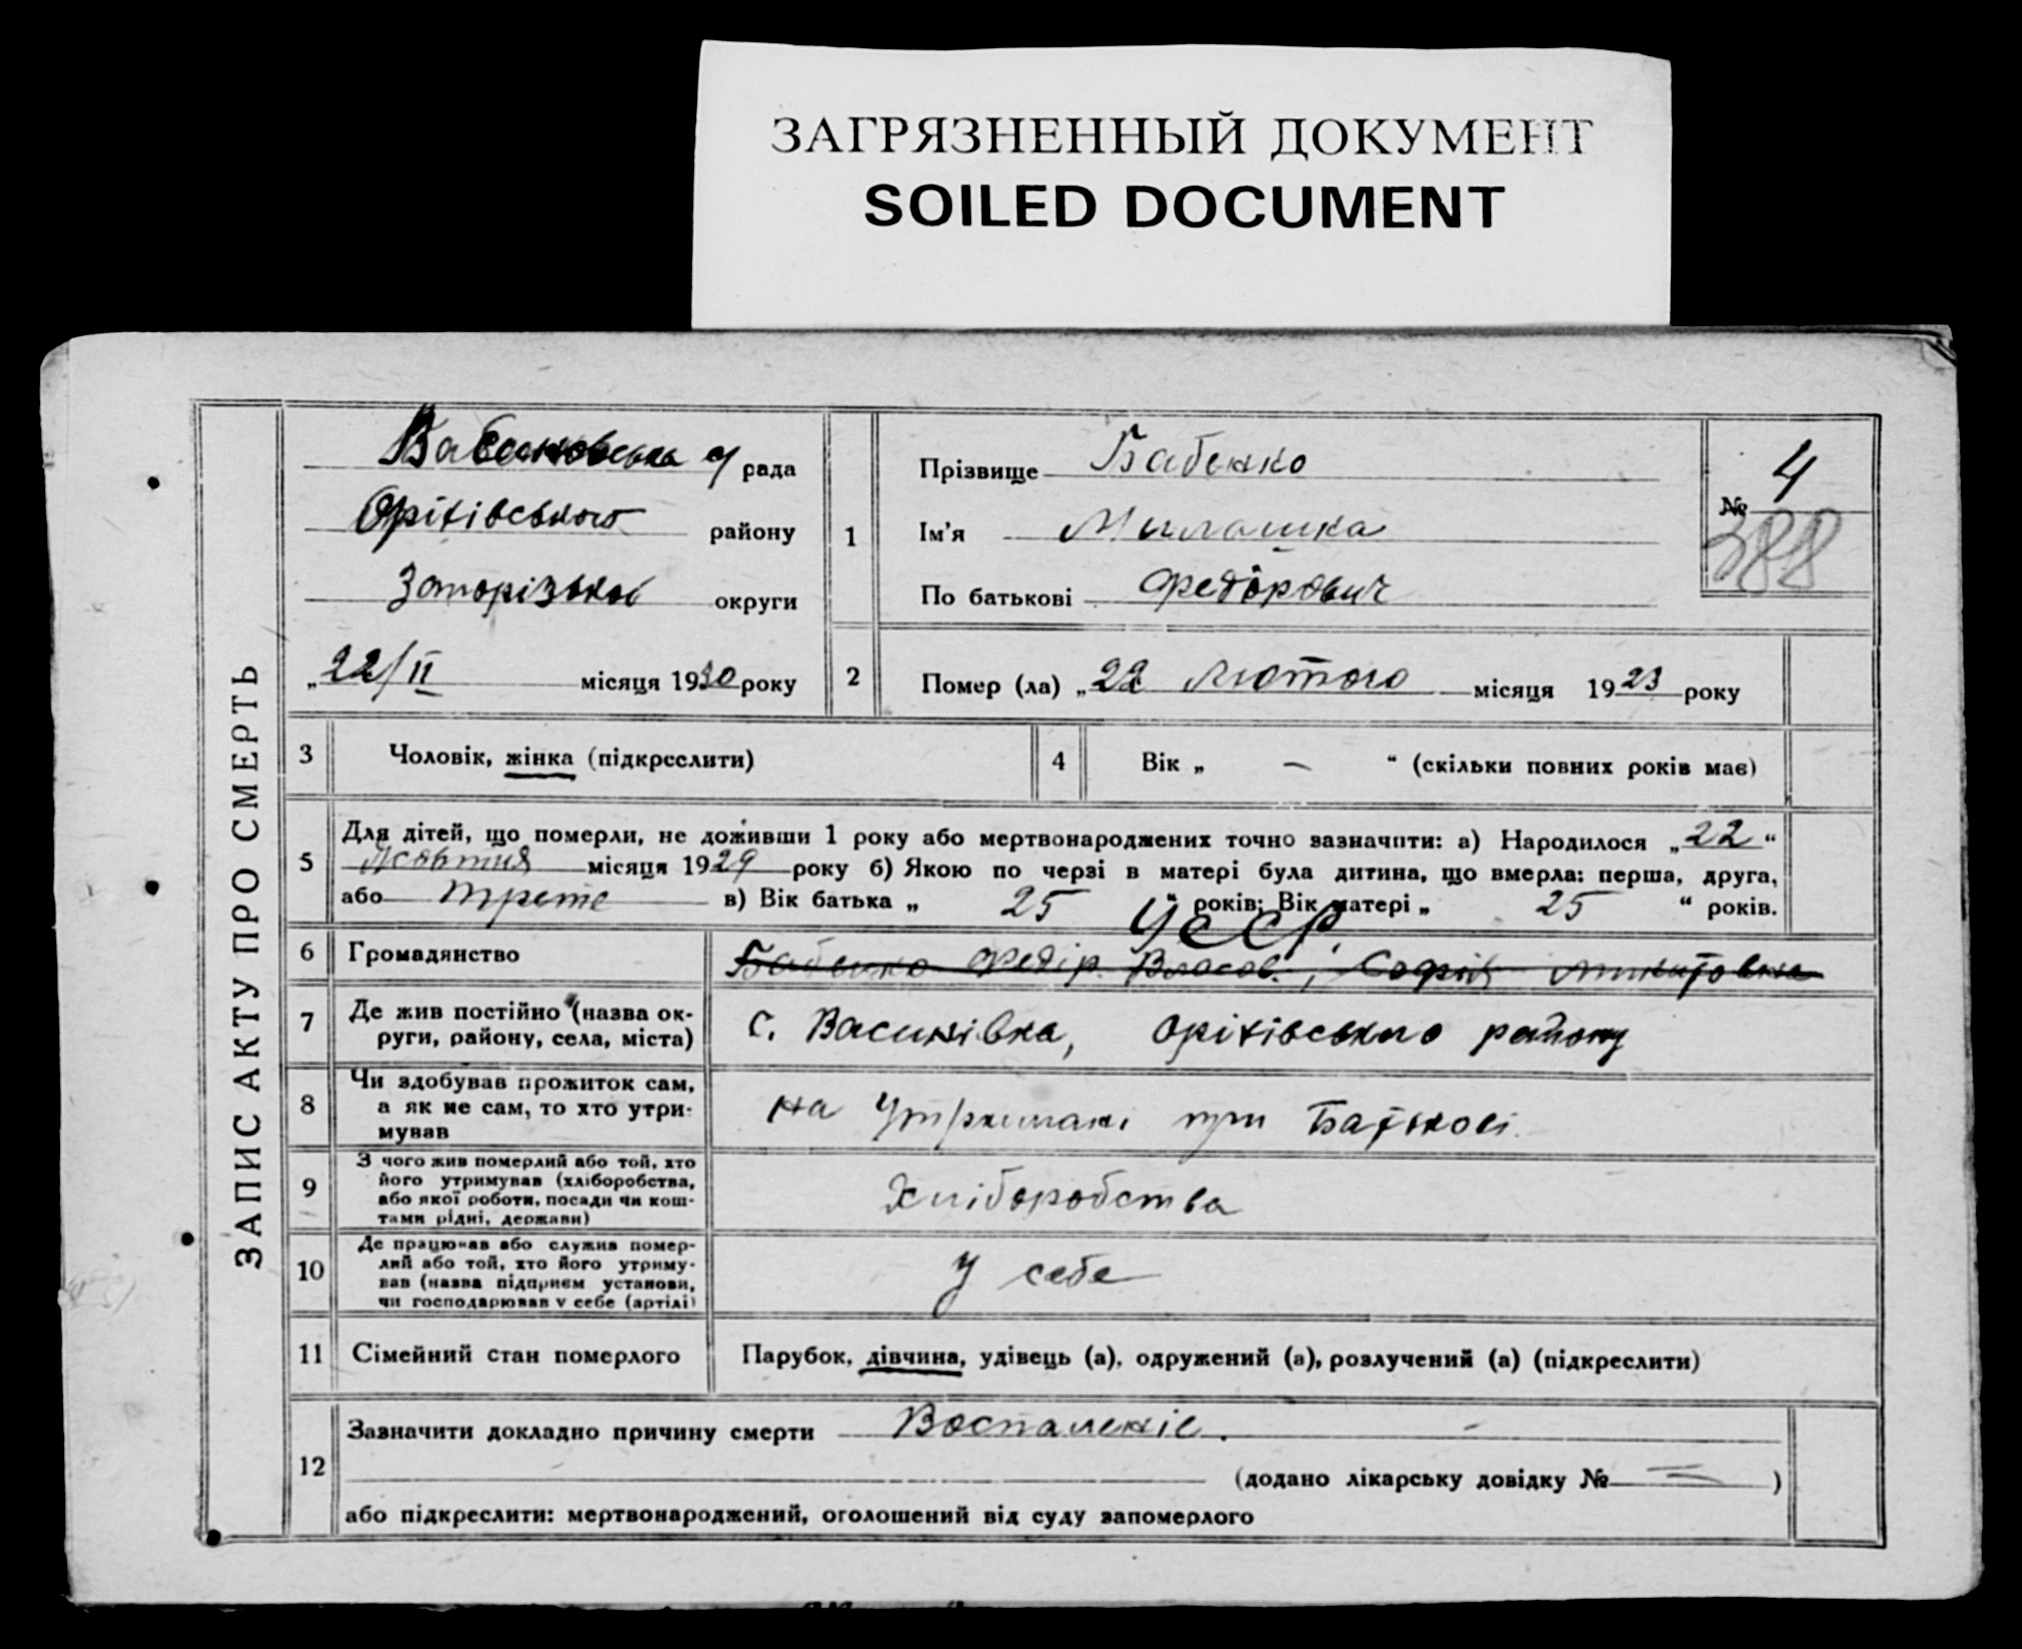 ЗАГРЯЗНЕННЫЙ ДОКУМЕНТ
SOILED DOCUMENT
ЗАПИС АКТУ ПРО СМЕРТЬ
рада
Оріхівського району
Запорізької округи
„22/II місяця 1930 року
1
Прізвище Бабенко
Ім'я Милашка
По батькові Федорович
№ 4
388
2
Помер (ла) „22 Лютого місяця 1923 року
3 Чоловік, жінка (підкреслити)
4 Вік „ — “ (скільки повних років має)
5 Для дітей, що померли, не доживши 1 року або мертвонароджених точно зазначити: а) Народилося „22“
Жовтня місяця 1929 року б) Якою по черзі в матері була дитина, що вмерла: перша, друга,
або трете в) Вік батька „ 25 “ років; Вік матері „ 25 “ років.
УССР
6 Громадянство Бабенко Федір Власов. , Софія Микитовна
7 Де жив постійно (назва ок-
руги, району, села, міста)
с. Васинівка, Оріхівського району
8 Чи здобував прожиток сам,
а як не сам, то хто утри-
мував
на Утримані при Батькові
9 З чого жив померлий або той, хто
його утримував (хліборобства,
або якої роботи, посади чи кош-
тами рідні, держави)
Хліборобства
10 Де працював або служив помер-
лий або той, хто його утриму-
вав (назва підприєм установи,
чи господарював у себе (артілі)
У себе
11 Сімейний стан померлого Парубок, дівчина, удівець (а), одружений (а), розлучений (а) (підкреслити)
12 Зазначити докладно причину смерти Воспаленіе. -
(додано лікарську довідку № — )
або підкреслити: мертвонароджений, оголошений від суду запомерлого